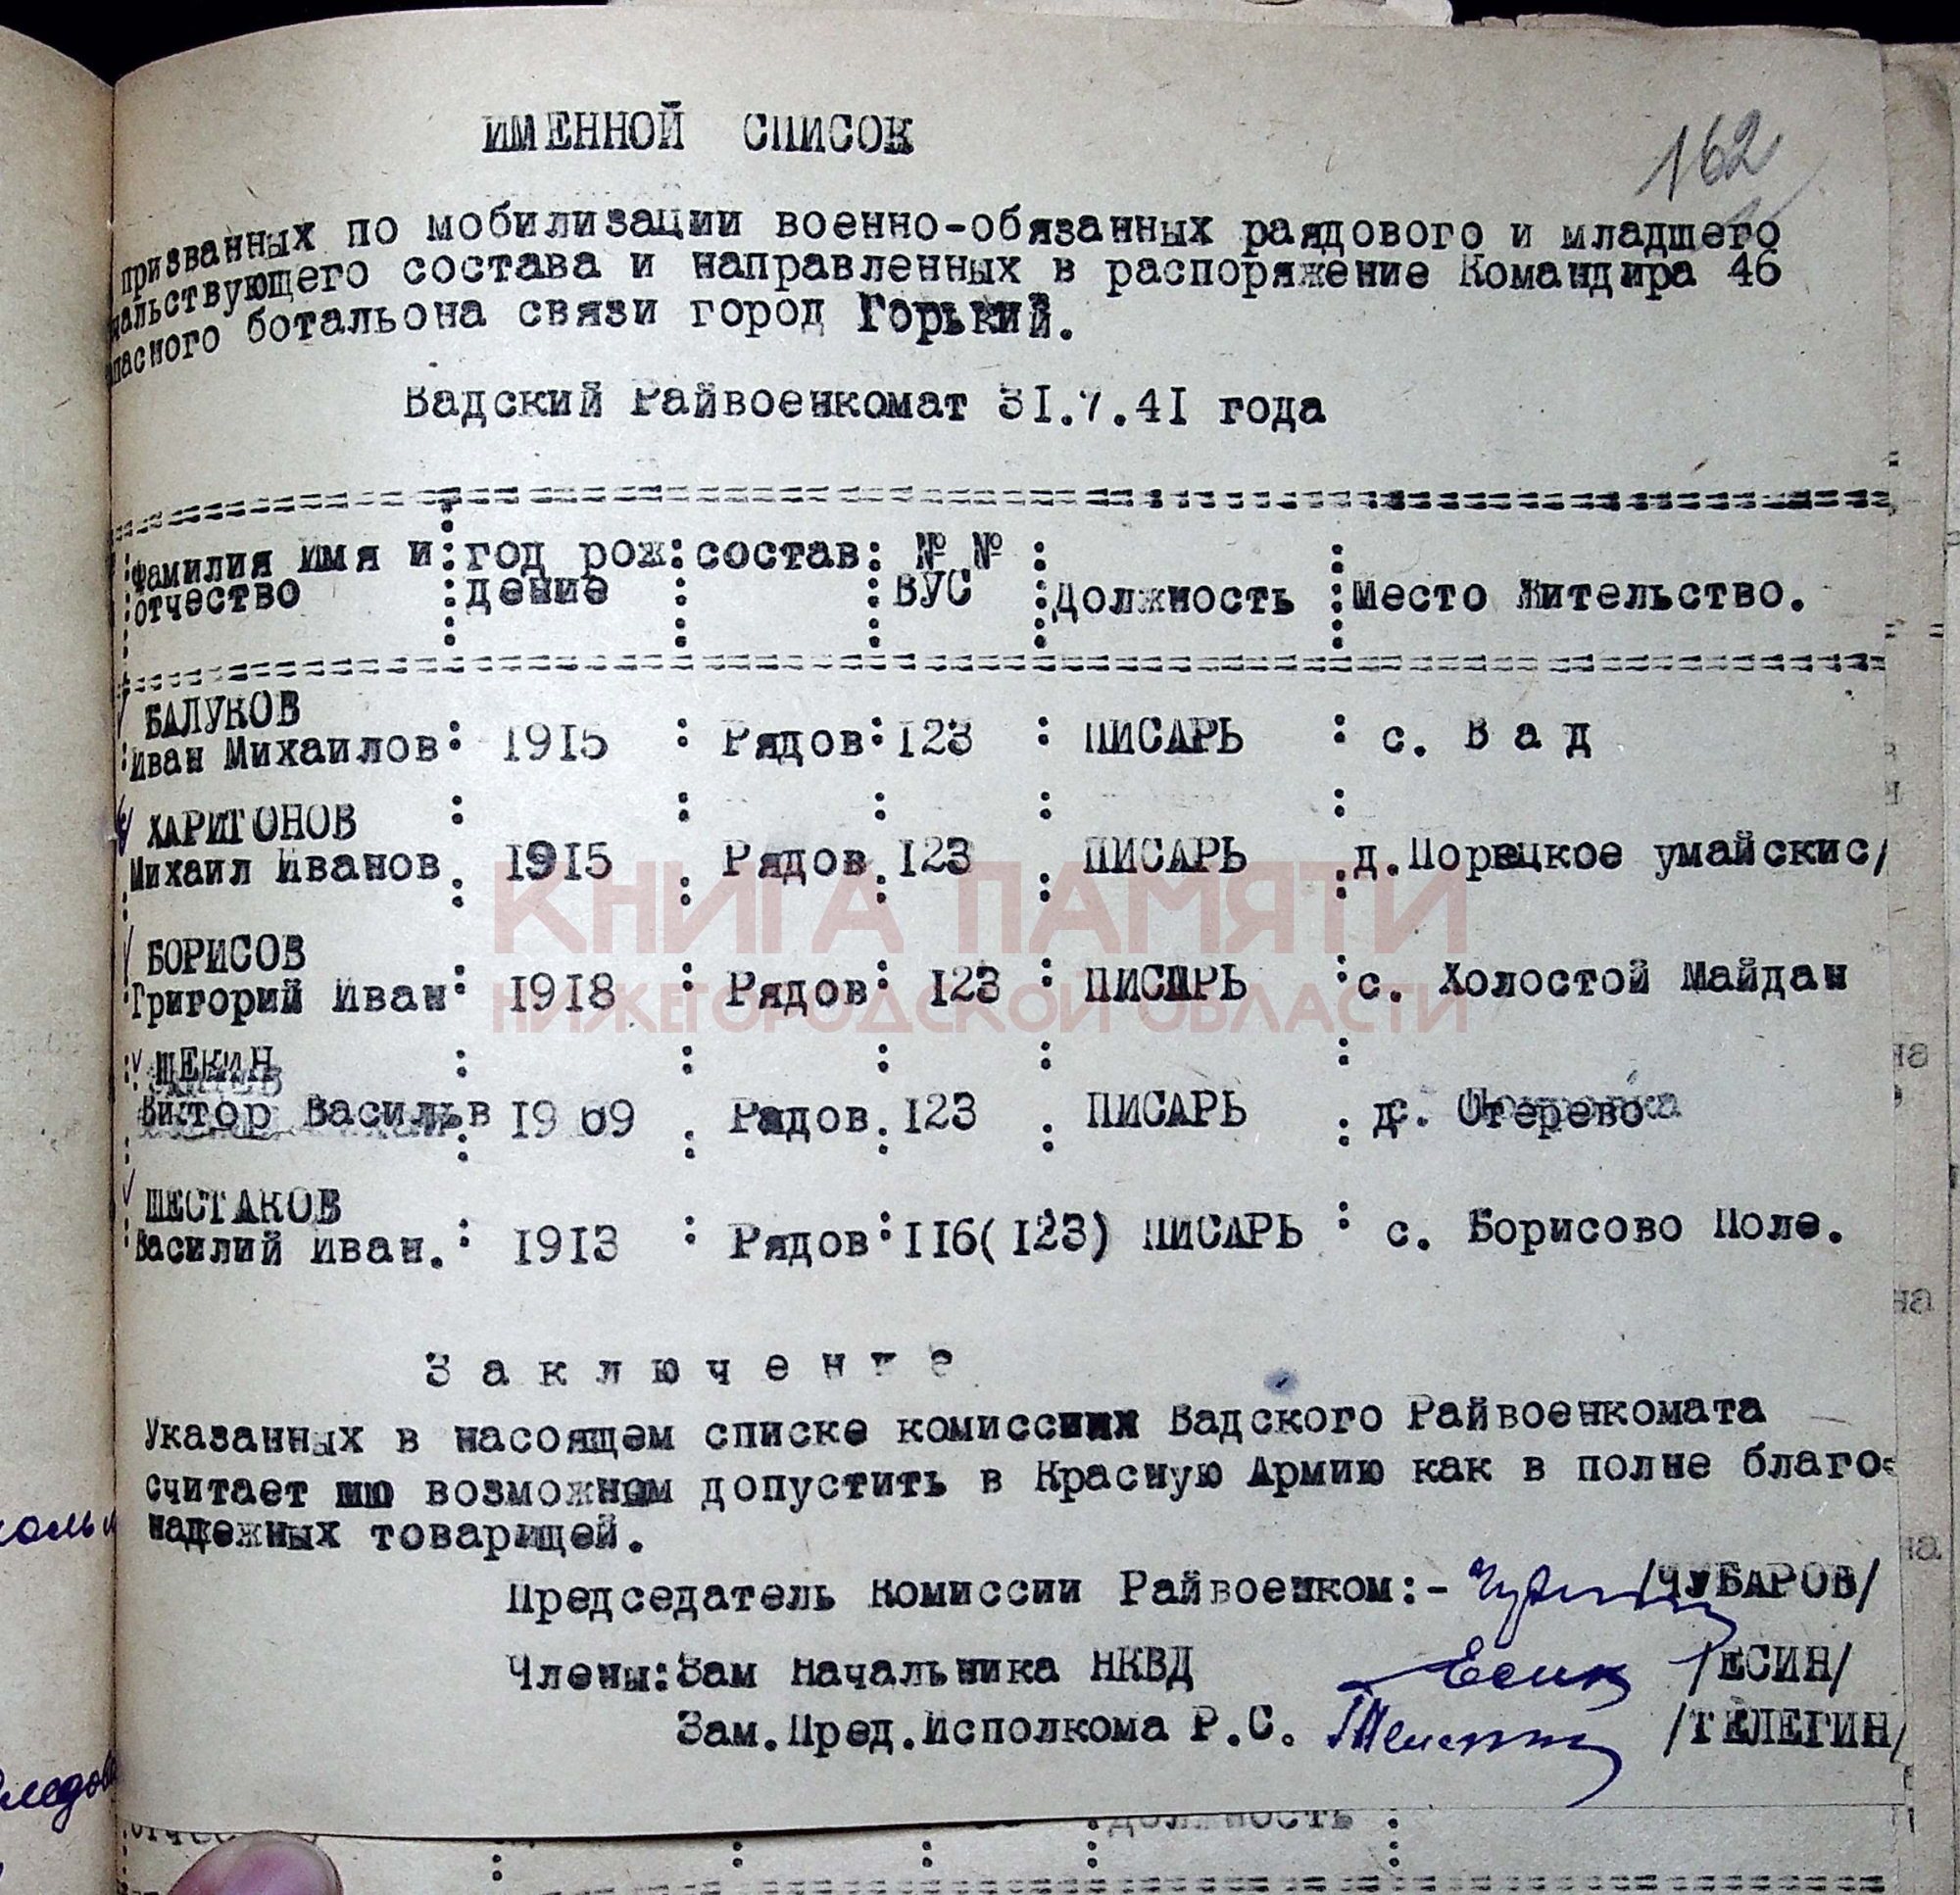 ИМЕННОЙ СПИСОК
162
призванных по мобилизации военно-обязанных раядового и младшего
чальствующего состава и направленных в распоряжение Командира 46
апасного ботальона связи город Горький.
Вадский Райвоенкомат 31.7.41 года
Фамилия Имя и : год рож : состав : № № :
отчество : дение : : ВУС : Должность : Место Жительство.
БАЛУКОВ
Иван Михаилов : 1915 : Рядов : 123 : ПИСАРЬ : с. В а д
ХАРИТОНОВ
Михаил Иванов. 1915 : Рядов. 123 : ПИСАРЬ : д.Порецкое умайскис/
КНИГА ПАМЯТИ
НИЖЕГОРОДСКОЙ ОБЛАСТИ
БОРИСОВ
Григорий Иван : 1918 : Рядов : 123 : ПИСАРЬ : с. Холостой Майдан
ШЕКИН
Виктор Васильв 1909 : Рядов. 123 : ПИСАРЬ : д. Отерево
ШЕСТАКОВ
Василий Иван. : 1913 : Рядов : 116(123) ПИСАРЬ : с. Борисово Поле.
З а к л ю ч е н и е
Указанных в насоящем списке комиссиия Вадского Райвоенкомата
считает возможным допустить в Красную Армию как в полне благо-
надежных товарищей.
Председатель Комиссии Райвоенком:- /ЧУБАРОВ/
Члены: Зам Начальника НКВД Есин /ЕСИН/
Зам.Пред.Исполкома Р.С. /ТЕЛЕГИН/
должность